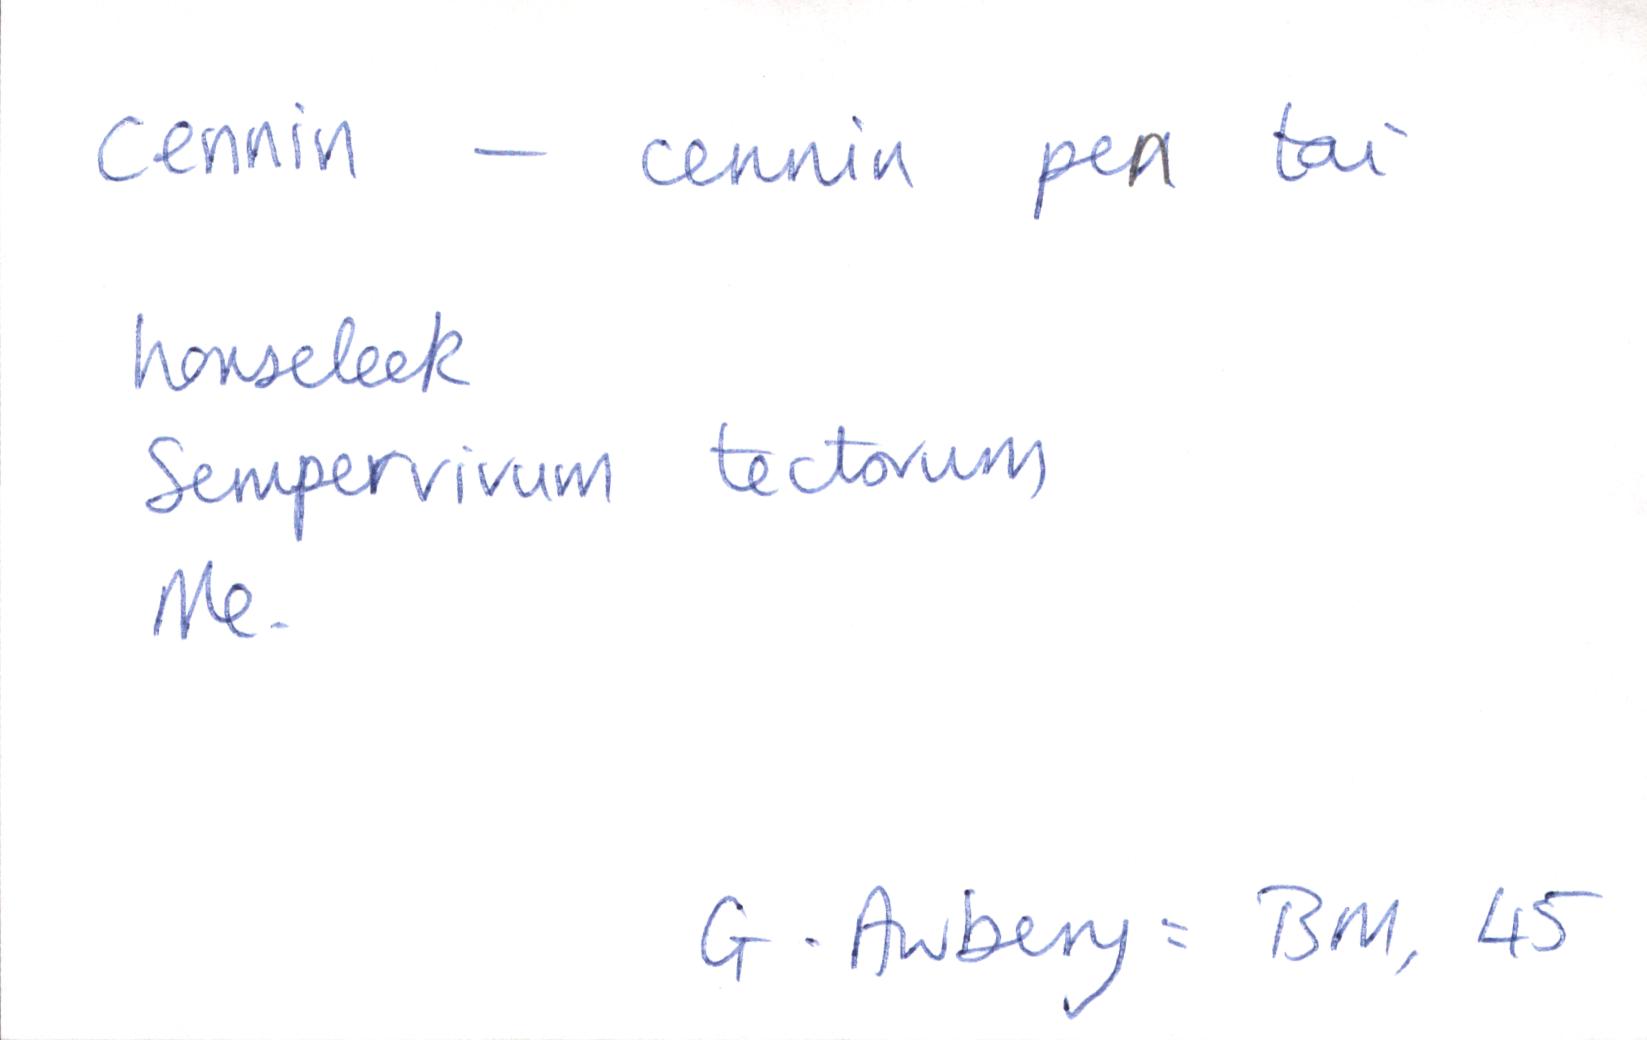 Cennin — cennin pen tai
houseleek
Sempervivum tectorum
Me.
G. Awbery = BM, 45